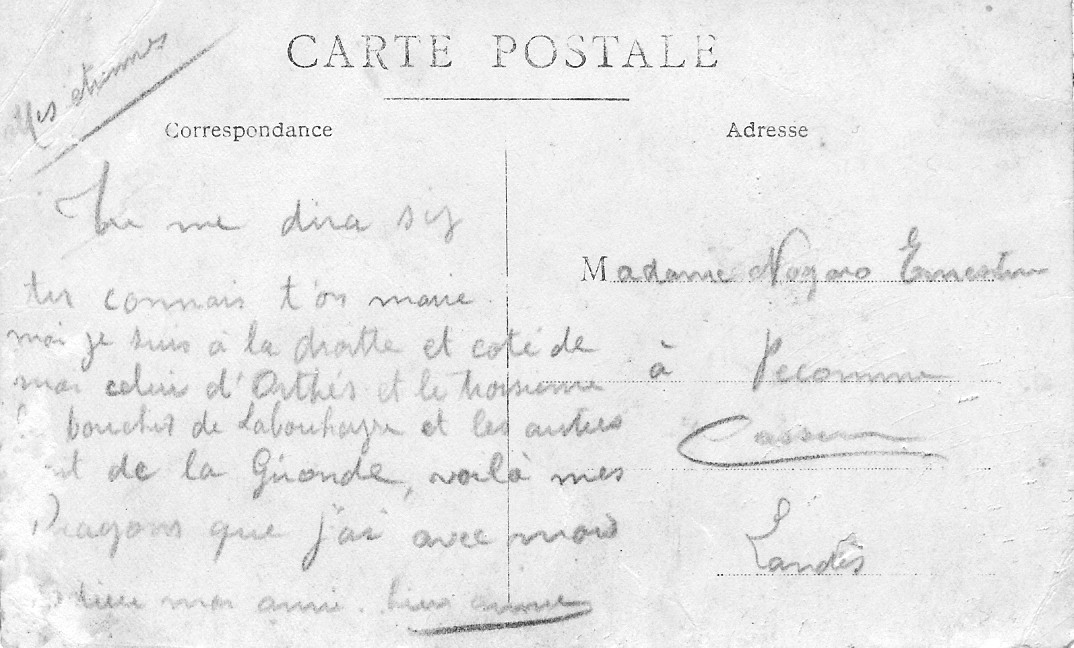 étrennes
CARTE POSTALE
Correspondance
Adresse
Tu me dira sy
tu connais t'on marie
moi je suis à la droitte et coté de
moi celui d'Orthés et le troisieme
boucher de Labouheyre et les autres
de la Gironde, voilà mes
Dragons que j'ai avec moi
mon amie. bien aimée
Madame Nogaro Ernestine
à Pecomme
Cassen
Landes